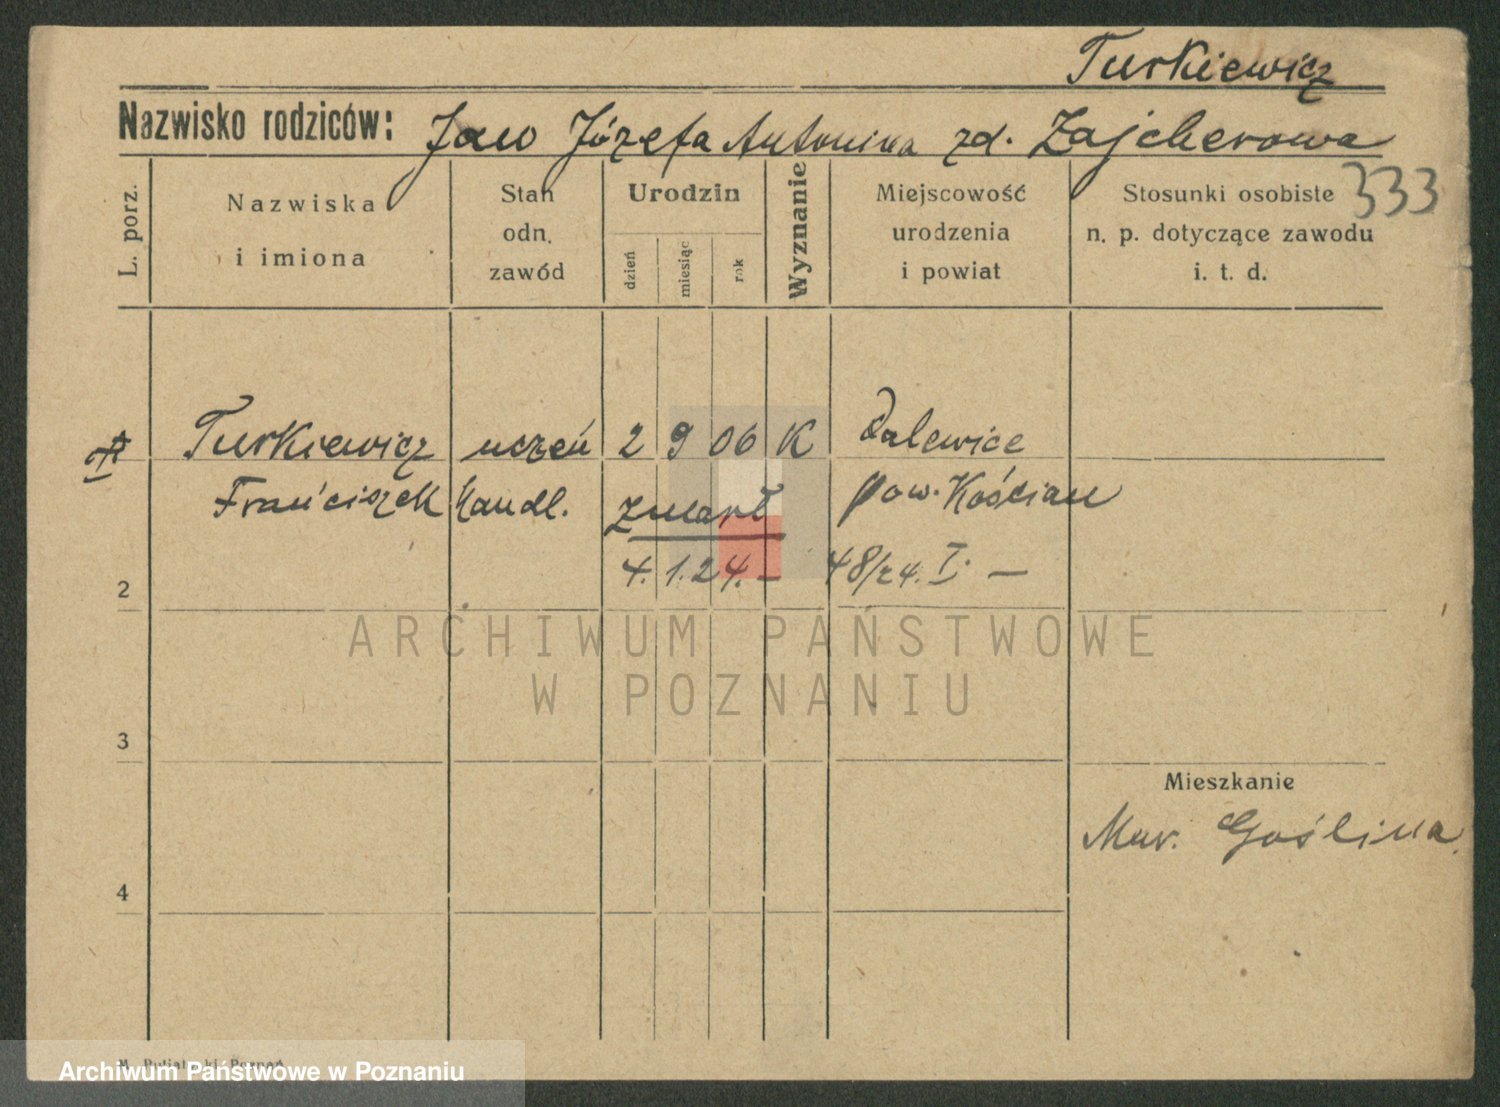 Turkiewicz
Nazwisko rodziców: Jan Józefa Antonina zd. Zajcherowa
333
L. porz.
Nazwiska
i imiona
Stan
odn.
zawód
Urodzin
dzień
miesiąc
rok
Wyznanie
Miejscowość
urodzenia
i powiat
Stosunki osobiste
n. p. dotyczące zawodu
i. t. d.
Turkiewicz uczeń 2 9 06 K Dalewice
Franciszek handl. zmarł pow. Kościan
4.1.24.– 48/24. I. –
2
ARCHIWUM PAŃSTWOWE
W POZNANIU
3
Mieszkanie
Mur. Goślina.
4
Archiwum Państwowe w Poznaniu